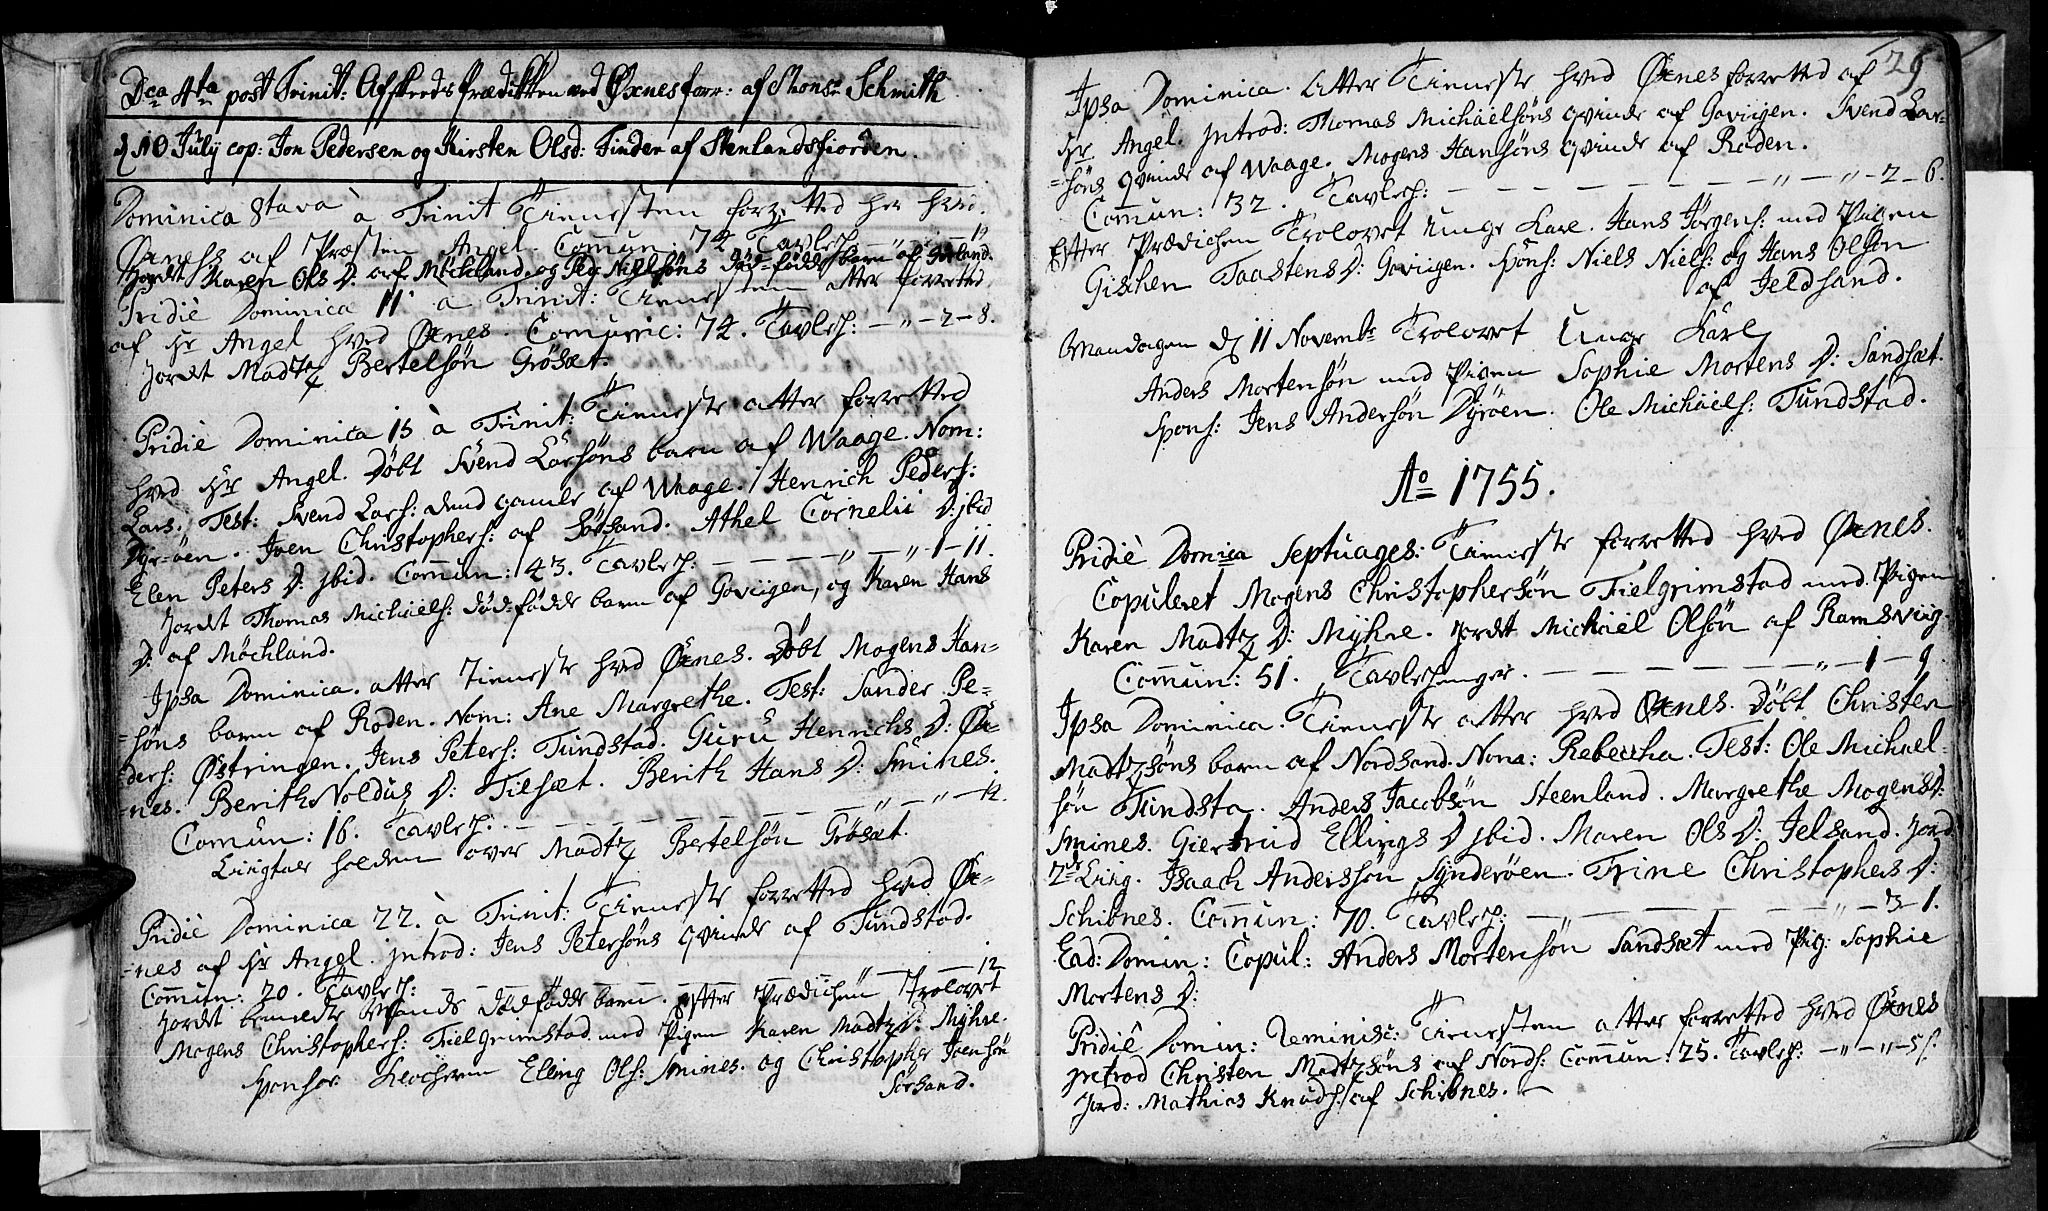 Dca 4ta post Trinit: Afskeeds Prædikken ved Øxnes forr: af Monsr Schmith
d 10 July cop: Jon Pedersen og Kirsten Olsd: Finder af Stenlandsfiorden.
Dominica 8tava à Trinit Tienesten forretted her hved
af Præsten Angel. Comun: 74. Tavlep:
Jordt Karen Ols D: af Mӧckland, og Ped: Nielsöns död-födde barn af
Pridiè Dominica 11 à Trinit: Tienesten atter forretted
af Hr Angel hved Øxnes. Comunic: 74. Tavlep: — „ — 2 — 8.
Jordt Madtz Bertelsön Grösæt.
Pridiè Dominica 15 à Trinit: Tieneste atter forretted
hved Hr Angel. Döbt Svend Larsöns barn af Waage. Nom:
Lars. Test: Svend Lars: dend gamle af Waage. Henrich Peders:
Dyr-öen. Joen Christophers: af Sörsand. Athel Cornelii D: jbid
Elen Peters D: jbid. Comun: 43. Tavlep: — — — „ — „ 1 — 11.
Jordt Thomas Michaels: död-födde barn af Goviigen, og Karen Hans
D: af Möckland.
Ipsa Dominica. atter Tieneste hved Øxnes. Döbt Mogens Han=
=söns barn af Roden. Nom: Ane Margrethe. Test: Sander Pe=
=ders: Østringen. Jens Peters: Tundstad. Guru Henrichs D: Øx=
=nes. Berith Noldus D: Tilsæt. Berith Hans D: Smines.
Comun: 16. Tavlep: — — — — — — „ — „ — 12.
Liigtale holden over Madtz Bertelsön Grösæt.
Pridiè Dominica 22. à Trinit: Tieneste forretted hved Øx=
=nes af Hr Angel. jntrod: Jens Petersöns qvinde af Tundstad.
Comun: 20. Tavlep: — — — — — „ — — 12
Jordt bemeldte Mands dödfödde barn. Efter Prædichen Trolovet
Mogens Christophers: Fielgrimstad med Pigen Karen Madtz D: Myhre.
Sponsor Elling Ols: Smines. og Christopher Joensön
Sörsand.
29
Ipsa Dominica. Atter Tieneste hved Øxnes forretted af
Hr Angel. jntrod: Thomas Michäelsöns qvinde af Goviigen. Svend Lar=
=söns qvinde af Waage. Mogens Hansöns qvinde af Roden.
Comun: 32. Tavlep: — — — — — — — „ — „ — 2 — 6.
Efter Prædichen Trolovet Unge Karl. Hans Jörgens: med Pigen
Gischen Taastens D: Goviigen. Spons: Niels Niels: og Hans Olsön
af Jeldsand.
Mandagen d 11 Novembr Trolovet Unge Karl
Anders Mortensön med Pigen Sophie Mortens D: Sandsæt.
Spons: Jens Andersön Dyröen. Ole Michäels: Tundstad.
Ao 1755.
Pridiè Domica Septuages: Tieneste forretted hved Øxnes.
Copuleret Mogens Christophersön Fielgrimstad med Pigen
Karen Madtz D: Myhre. Jordt Michäel Olsön af Ramsviig.
Comun: 51. Tavlepenger. — — — — — — „ — 1 — 9
Ipsa Dominica. Tieneste atter hved Øxnes. Döbt Christen
Madtzsöns barn af Nordsand. Nona: Rebeccha. Test: Ole Michael=
sön Tundsta. Anders Jacobsön Steenland. Margrethe Mogens D:
Smines. Giertrud Ellings D jbid. Maren Ols D: Jelsand. Jord
2de Liig. Jsaach Anderssön Synderöen. Trine Christophers D:
Schibnes. Comun: 70. Tavlep: — „ — — — — „ — 3 — 1.
Ead: Domin: Copul: Anders Mortensön Sandsæt med Pig: Sophie
Mortens D:
Pridiè Domin: Reminisc: Tienesten atter forretted hved Øxnes
jntrod Christen Madtzsöns af Nords: Comun: 25. Tavlep: — „ — „ — 5 s:
Jord: Mathias Knuds: af Schibnes.